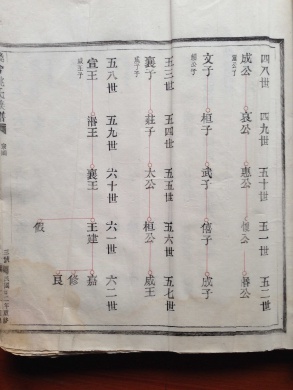 四八世 四九世 五十世 五一世 五二世
成公 哀公 惠公 懷公 釐公
文子 桓子 武子 僖子 成子
五三世 五四世 五五世 五六世 五七世
襄子 莊子 太公 桓公 威王
五八世 五九世 六十世 六一世 六二世
宣王 湣王 襄王 王建 嘉
修
良
假